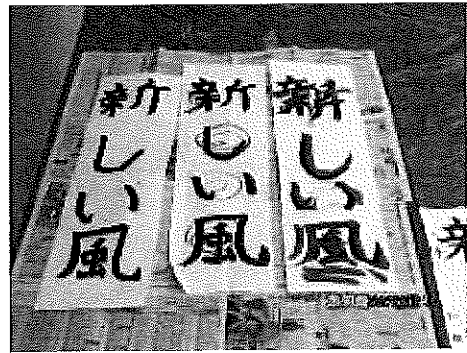 新しい風
新しい風
新しい風